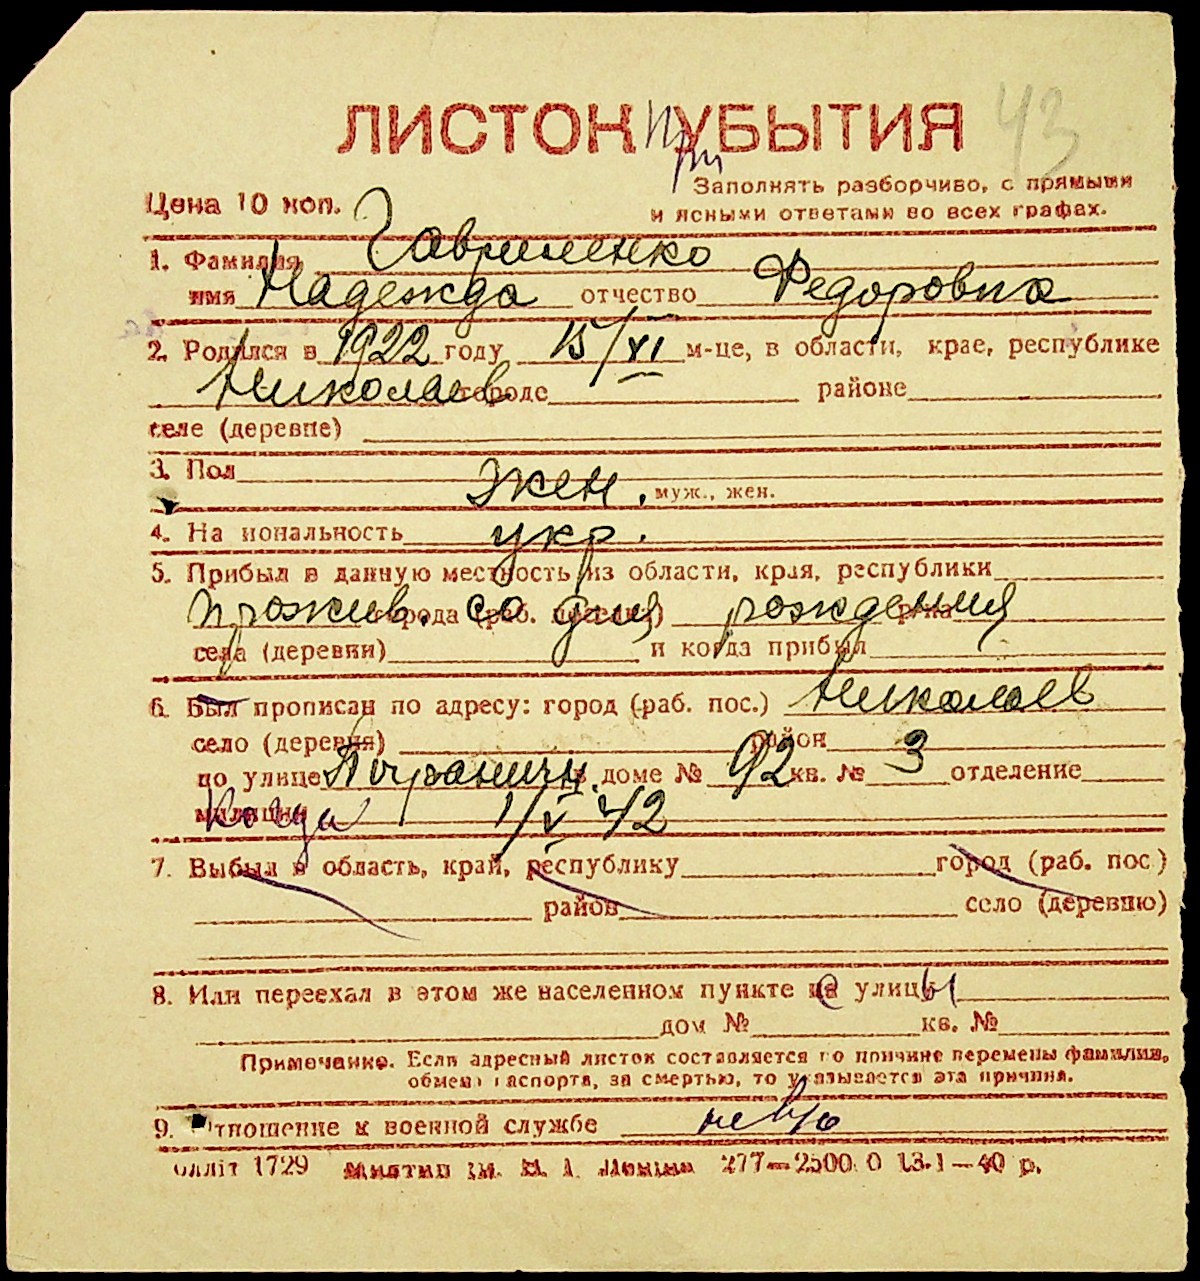 ЛИСТОК при УБЫТИЯ 43
Заполнять разборчиво, с прямыми
Цена 10 коп. и ясными ответами во всех графах.
1. Фамилия Гавриленко
имя Надежда отчество Федоровна
2. Родился в 1922 году 15/VI м-це, в области, крае, республике
Николаев городе районе
селе (деревне)
3. Пол жен. муж., жен.
4. На иональность укр.
5. Прибыл в данную местность из области, края, республики
прожив. города (раб. поселка) со дня р-на рождения
села (деревни) и когда прибыл
6. Был прописан по адресу: город (раб. пос.) Николаев
село (деревня) район
по улице Пограничн. в доме № 92 кв. № 3 отделение
милиции Когда 1/V 42
7. Выбыл в область, край, республику город (раб. пос.)
район село (деревню)
8. Или переехал в этом же населенном пункте с улицы
дом № кв. №
Примечание. Если адресный листок составляется по причине перемены фамилии,
обмена паспорта, за смертью, то указывается эта причина.
9. Отношение к военной службе не в/о
облліт 1729 277—2500 0 13.1—40 р.